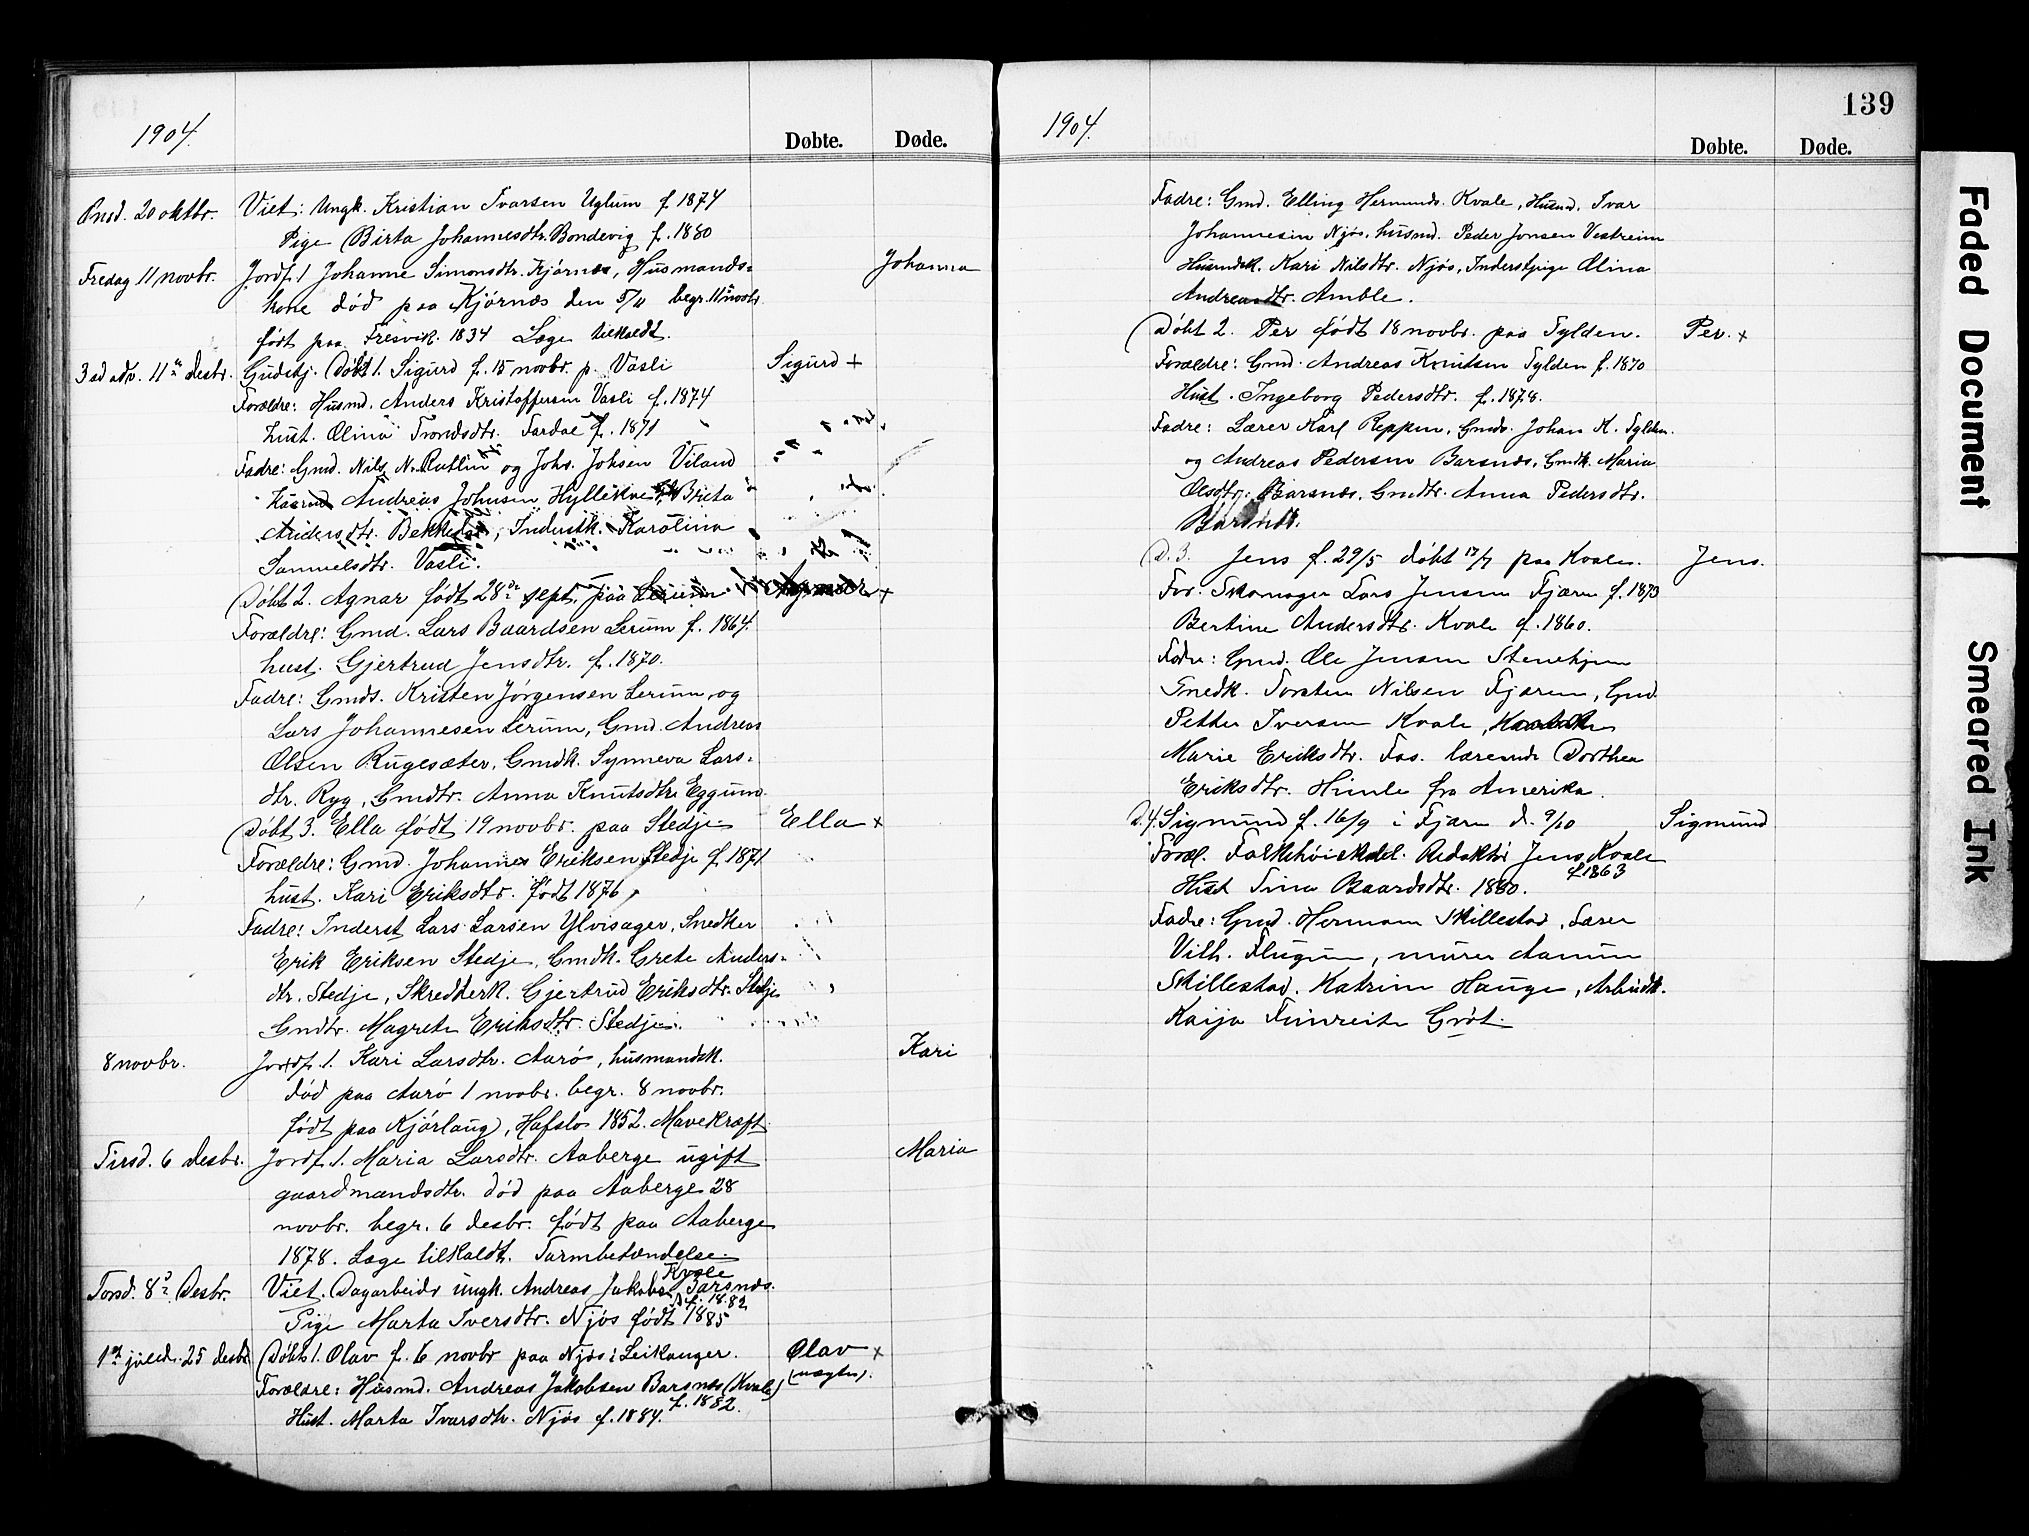 139
1904.
Døbte.
Døde.
Onsd. 20 oktbr.
Viet: Ungk. Kristian Ivarsen Uglum f. 1874
Pige Birta Johannesdtr. Bondevig f. 1880
Fredag 11 novbr.
Jordf. 1 Johanne Simonsdtr. Kjørnæs, Husmands-
Johanna
kone død paa Kjørnæs den 5/11 begr. 11 novbr.
født paa Fresvik 1834 Læge tilkaldt.
3 sd adv. 11te desbr.
Gudstj. Døbt 1. Sigurd f. 15 novbr. p. Vasli
Sigurd +
Forældre: Husmd. Anders Kristoffersen Vasli f. 1874
hust. Olina Trondsdtr. Fardal f. 1871
Fadre: Gmd. Nils N. Rutlin og Johs. Johsen Viland
Andreas Johnsen Brita
Andersdtr. Inderstk. Karolina
Samuelsdtr. Vasli.
Døbt 2. Agnar født 28de sept. paa Lerum
Agnar +
Forældre: Gmd. Lars Baardsen Lerum f. 1864.
hust. Gjertrud Jensdtr. f. 1870.
Fadre: Gmds. Kristen Jørgensen Lerum, og
Lars Johannesen Lerum, Gmd. Andreas
Olsen Rugesæter, Gmdk. Synneva Lars-
dtr. Ryg, Gmdtr. Anna Knutsdtr Eggum
Døbt 3. Ella født 19 novbr. paa Stedje
Ella +
Forældre: Gmd. Johannes Eriksen Stedje f. 1871
hust. Kari Eriksdtr. født 1876,
Fadre: Inderst Lars Larsen Ylvisager, Snedker
Erik Eriksen Stedje, Gmdk. Grete Anders-
dtr. Stedje, Skredderk. Gjertrud Eriksdtr. Stedje
Gmdtr. Magrete Eriksdtr. Stedje.
8 novbr.
Jordf. 1. Kari Larsdtr. Aarø, husmandsk.
Kari
død paa Aarø 1 novbr. begr. 8 novbr.
født paa Kjørlaug, Hafslo 1852. Mavekræft
Tirsd. 6 desbr.
Jordf. 1. Maria Larsdtr. Aaberge ugift
Maria
gaardmandsdtr. død paa Aaberge 28
novbr. begr. 6 desbr. født paa Aaberge
1878. Læge tilkaldt. Tarmbetændelse.
Kvale
Torsd. 8de Desbr.
Viet. Dagarbeidr ungk. Andreas Jakobsen Barsnæs.
f. 1882
Pige Marta Iversdtr. Njøs født 1885
1ste juled. 25 desbr
Døbt 1. Olav f. 6 novbr paa Njøs i Leikanger.
Olav +
(uægte).
Forældre: Husmd. Andreas Jakobsen Barsnæs (Kvale)
f. 1882.
Hust. Marta Ivarsdtr. Njøs f. 1884.
1904.
Døbte.
Døde.
Fadre: Gmd. Elling Hermunds. Kvale, Husmd. Ivar
Johannesen Njøs, husmd. Peder Jonsen Vestreim
Husmdsk. Kari Nilsdtr. Njøs, Inderstpige Olina
Andreasdtr. Amble.
Døbt 2. Per født 18 novbr. paa Tylden.
Per. +
Forældre: Gmd. Andreas Knutsen Tylden f. 1870
Hust. Ingeborg Pedersdtr. f. 1878.
Fadre: Lærer Karl Reppen, Gmds. Johan K. Tylden.
og Andreas Pedersen Barsnæs, Gmdk. Maria
Olsdtr. Barsnæs, Gmdtr. Anna Pedersdtr.
Barsnæs.
D. 3. Jens f. 29/5 døbt 17/7 paa Kvale.
Jens.
For. Skomager Lars Jensen Fjæren f. 1873
Bertine Andersdtr. Kvale f. 1860.
Fadre: Gmd. Ole Jensen Stenehjem
Snedk. Torsten Nilsen Fjæren, Gmd.
Petter Iversen Kvale,
Marie Eriksdtr. Fos. lærerinde Dorthea
Eriksdtr. Himle fra Amerika.
D. 4. Sigmund f. 16/9 i Fjæren d. 9/10
Sigmund
Foræl. Folkehøiskol. Redaktør Jens Kvale
f. 1863
Hust Tina Baardsdtr. 1880.
Fadre: Gmd. Hermann Skillestad, Lærer
Vilh. Flugum, murer Aamun
Skillestad. Katrine Hauge, Arbeidk.
Kaija Fimreite Grøt.
Faded Document
Smeared Ink